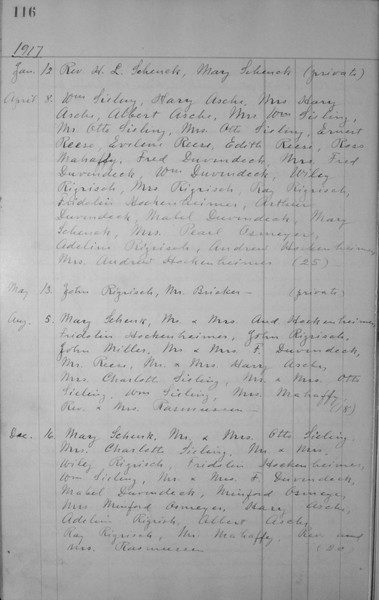 116
1917
Jan. 12 Rev. H. L. Schenck, Mary Schenck (private)
April 8. Wm Sieling, Harry Asche, Mrs Harry
Asche, Albert Asche, Mrs Wm Sieling,
Mr. Otto Sieling, Mrs. Otto Sieling, Ernest
Reese, Evelene Reese, Edith Reese, Ross
Mahaffy, Fred Duvendeck, Mrs. Fred
Duvendeck, Wm Duvendeck, Wiley
Rigrisch, Mrs Rigrisch, Ray Rigrisch,
Fridolin Hockenheimer, Arthur
Duvendeck, Mabel Duvendeck, Mary
Schenck, Mrs. Pearl Osmeyer,
Adeline Rigrisch, Andrew Hockenheimer,
Mrs. Andrew Hockenheimer (25)
May 13. John Rigrisch, Mr. Bricker — (private)
Aug. 5. Mary Schenk, Mr. & Mrs. And. Hockenheimer,
Fridolin Hockenheimer, John Rigrisch,
John Miller, Mr & Mrs F. Duvendeck,
Mr. Reese, Mr. & Mrs. Harry Asche,
Mrs. Charlott Sieling, Mr. & Mrs. Otto
Sieling, Wm Sieling, Mrs. Mahaffy,
Rev. & Mrs. Rasmussen — (18)
Dec. 16. Mary Schenk, Mr. & Mrs. Otto Sieling,
Mrs. Charlotte Sieling, Mr. & Mrs.
Wiley Rigrisch, Fridolin Hockenheimer,
Wm Sieling, Mr & Mrs F. Duvendeck,
Mabel Duvendeck, Minford Osmeyer,
Mrs Minford Osmeyer, Harry Asche,
Adeline Rigrisch, Albert Asche,
Ray Rigrisch, Mr. Mahaffy, Rev. and
Mrs. Rasmussen (20)